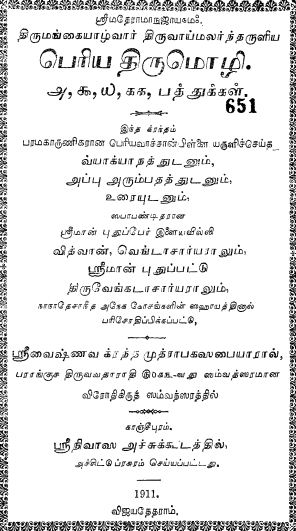 ஸ்ரீமதேராமாநுஜாயநம:
திருமங்கையாழ்வார் திருவாய்மலர்ந்தருளிய
பெரிய திருமொழி.
அ, கூ, ய, கக, பத்துக்கள்.
651
இந்த க்ரந்தம்
பரமகாருணிகரான பெரியவாச்சான்பிள்ளை யருளிச்செய்த
வ்யாக்யாநத்துடனும்,
அப்பு அரும்பதத்துடனும்,
உரையுடனும்,
ஸ்ரீமான் புதுப்பேர் இளையவில்லி
வித்வான், வெங்டாசார்யராலும்,
ஸ்ரீமான் புதுப்பட்டு
திருவேங்கடாசார்யராலும்,
நாநாதேசாரித அநேக கோசங்களின் ஸஹாயத்தினால்
பரிசோதிப்பிக்கப்பட்டு,
ஸ்ரீவைஷ்ணவ க்ரந்த முத்ராபகஸபையாரால்,
பராங்குச திருவவதாராதி ஸம்வத்ஸரமான
விரோதிகிருத் ஸம்வத்ஸரத்தில்
காஞ்சீபுரம்.
ஸ்ரீநிவாஸ அச்சுக்கூடத்தில்,
அச்சிட்டு ப்ரசுரம் செய்யப்பட்டது.
1911.
விஜயதேதராம்.